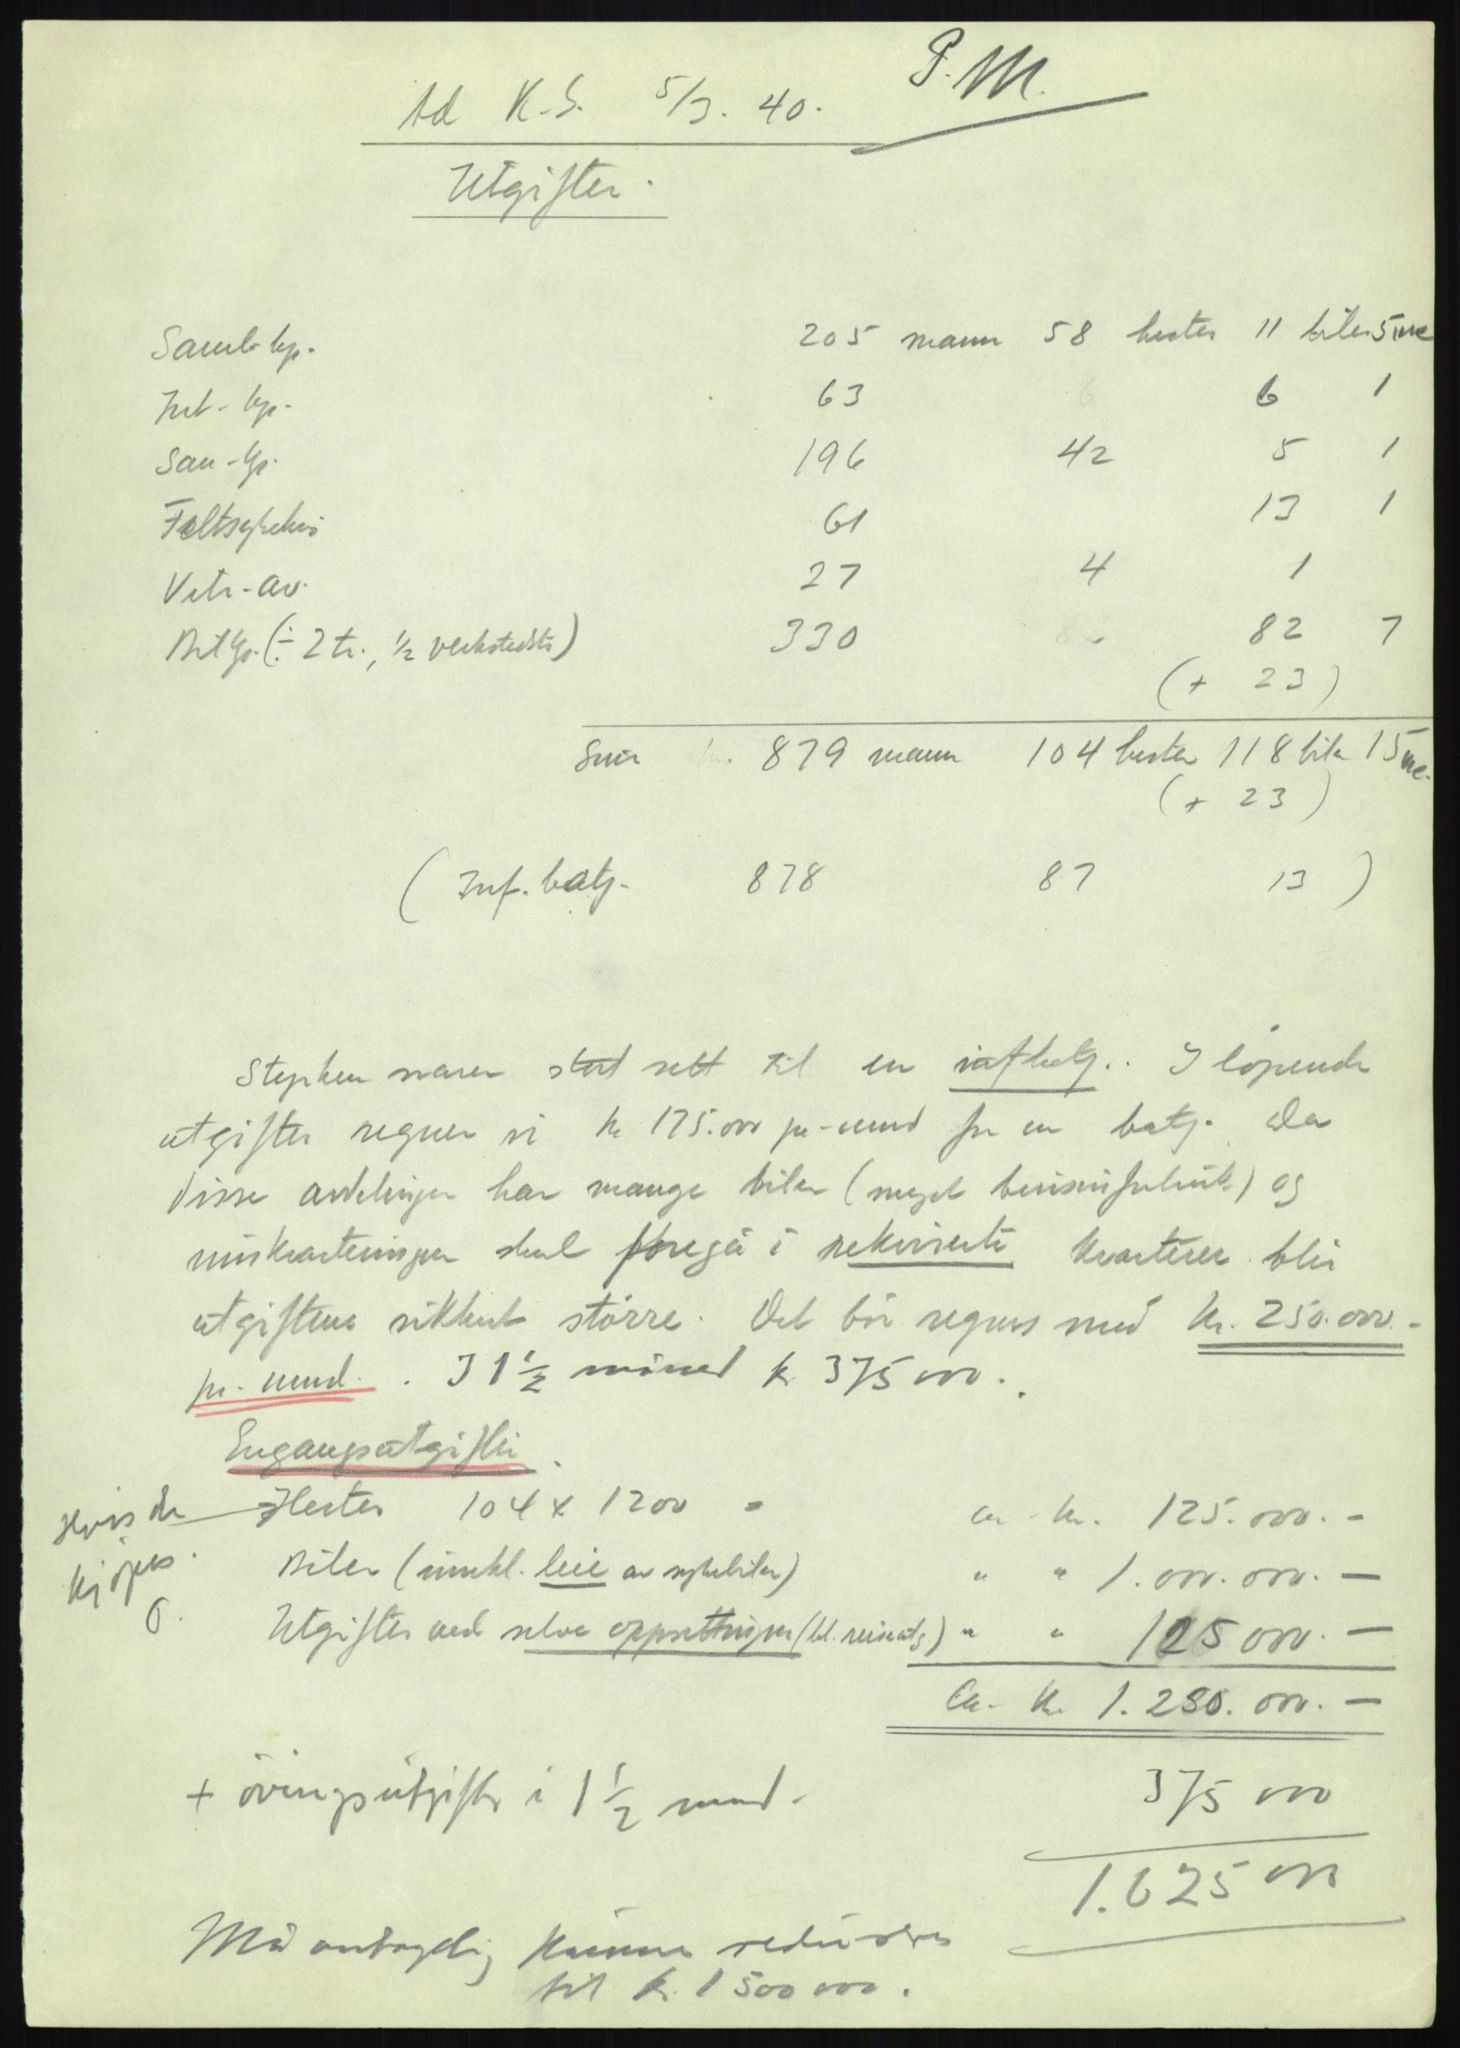 P.M.
Ad K.G. 5/3. 40.
Utgifter.
Samb-kp. 205 mann 58 hester 11 biler 5 mc
Int-kp. 63 6 1
San-kp. 196 42 5 1
Feltsykehus 61 13 1
Vetr-av. 27 4 1
Bilkp. (÷ 2 tr., ½ verksteds) 330 82 7
(+ 23)
Sum 879 mann 104 hester 118 biler 15 mc.
(+ 23)
(Inf. batj. 878 87 13)
Styrken svarer stort sett til en infbatj.. I löpende
utgifter regner vi kr 175.000 pr-mnd for en batj. Da
disse avdelinger har mange biler (meget bensinforbruk) og
innkvarteringen skal foregå i rekvirerte kvarterer blir
utgiftene sikkert större. Det bör regnes med kr. 250.000.-
pr. mnd. . I 1 ½ måned kr 375 000.
Engangsutgifter.
Hvis de kjöpes. Hester 104 x 1200 = ca. kr. 125.000.-
Biler (innkl. leie av sykebiler) " " 1.000.000.-
Utgifter ved selve oppsettningen (bl. reiseutg) " " 125 000.-
Ca. kr. 1.250.000.-
+ övingsutgifter i 1 ½ mnd. 375 000
1.625 000
Må antagelig kunne reduseres
til kr. 1 500 000.